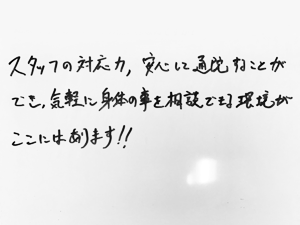 スタッフの対応力，安心して通院することが
でき，気軽に身体の事を相談できる環境が
ここにはあります!!